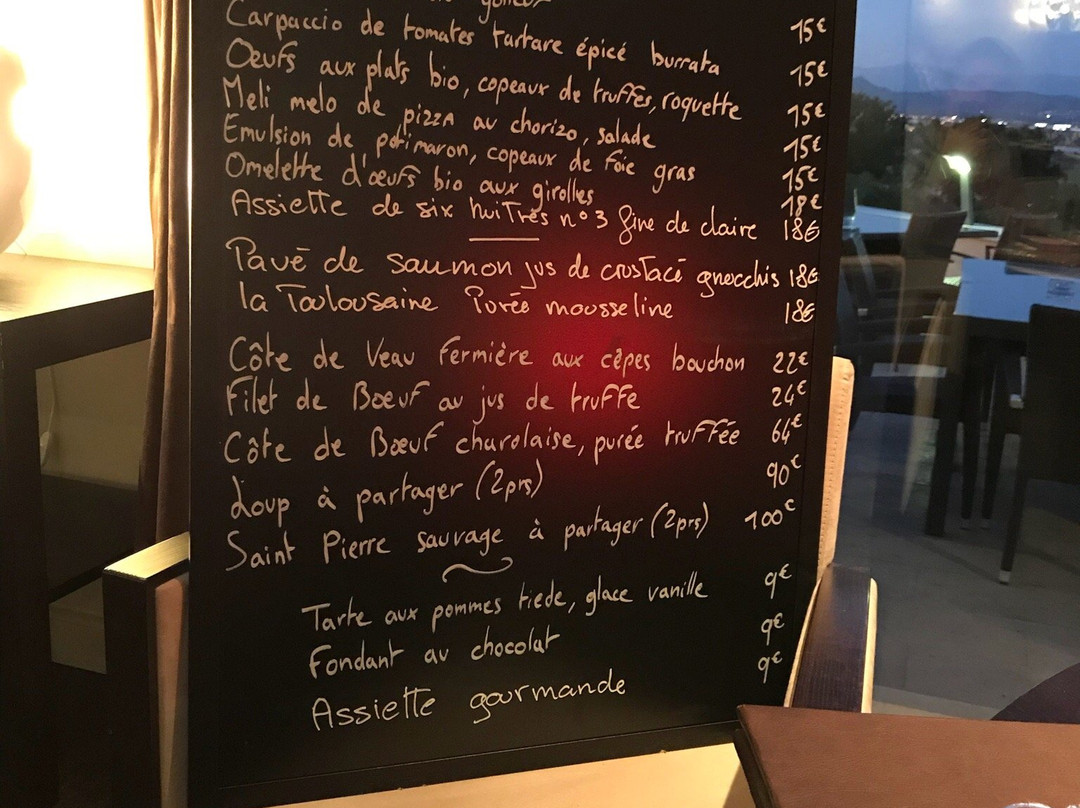 15€
Carpaccio de tomates tartare épicé burrata 15€
Œufs aux plats bio, copeaux de truffes, roquette 15€
Meli melo de pizza au chorizo, salade 15€
Emulsion de potimaron, copeaux de foie gras 15€
Omelette d'œufs bio aux girolles 18€
Assiette de six huîtres n°3 fine de claire 18€
Pavé de saumon jus de crustacé gnocchis 18€
la Toulousaine Purée mousseline 18€
Côte de Veau fermière aux cêpes bouchon 22€
Filet de Bœuf au jus de truffe 24€
Côte de Bœuf charolaise, purée truffée 64€
Loup à partager (2prs) 90€
Saint Pierre sauvage à partager (2prs) 100€
Tarte aux pommes tiede, glace vanille 9€
Fondant au chocolat 9€
Assiette gourmande 9€